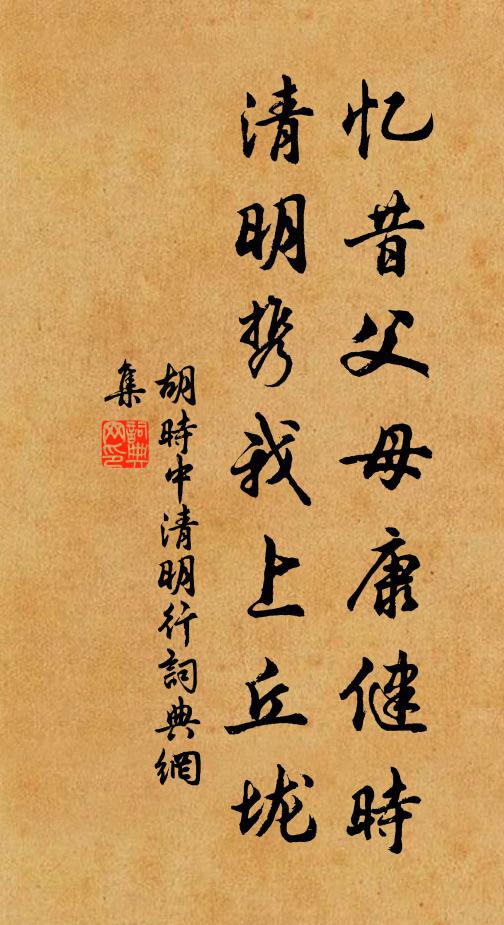 忆昔父母康健時
清明携我上丘垅
胡時中清明行詞典網
集
詞典
网印